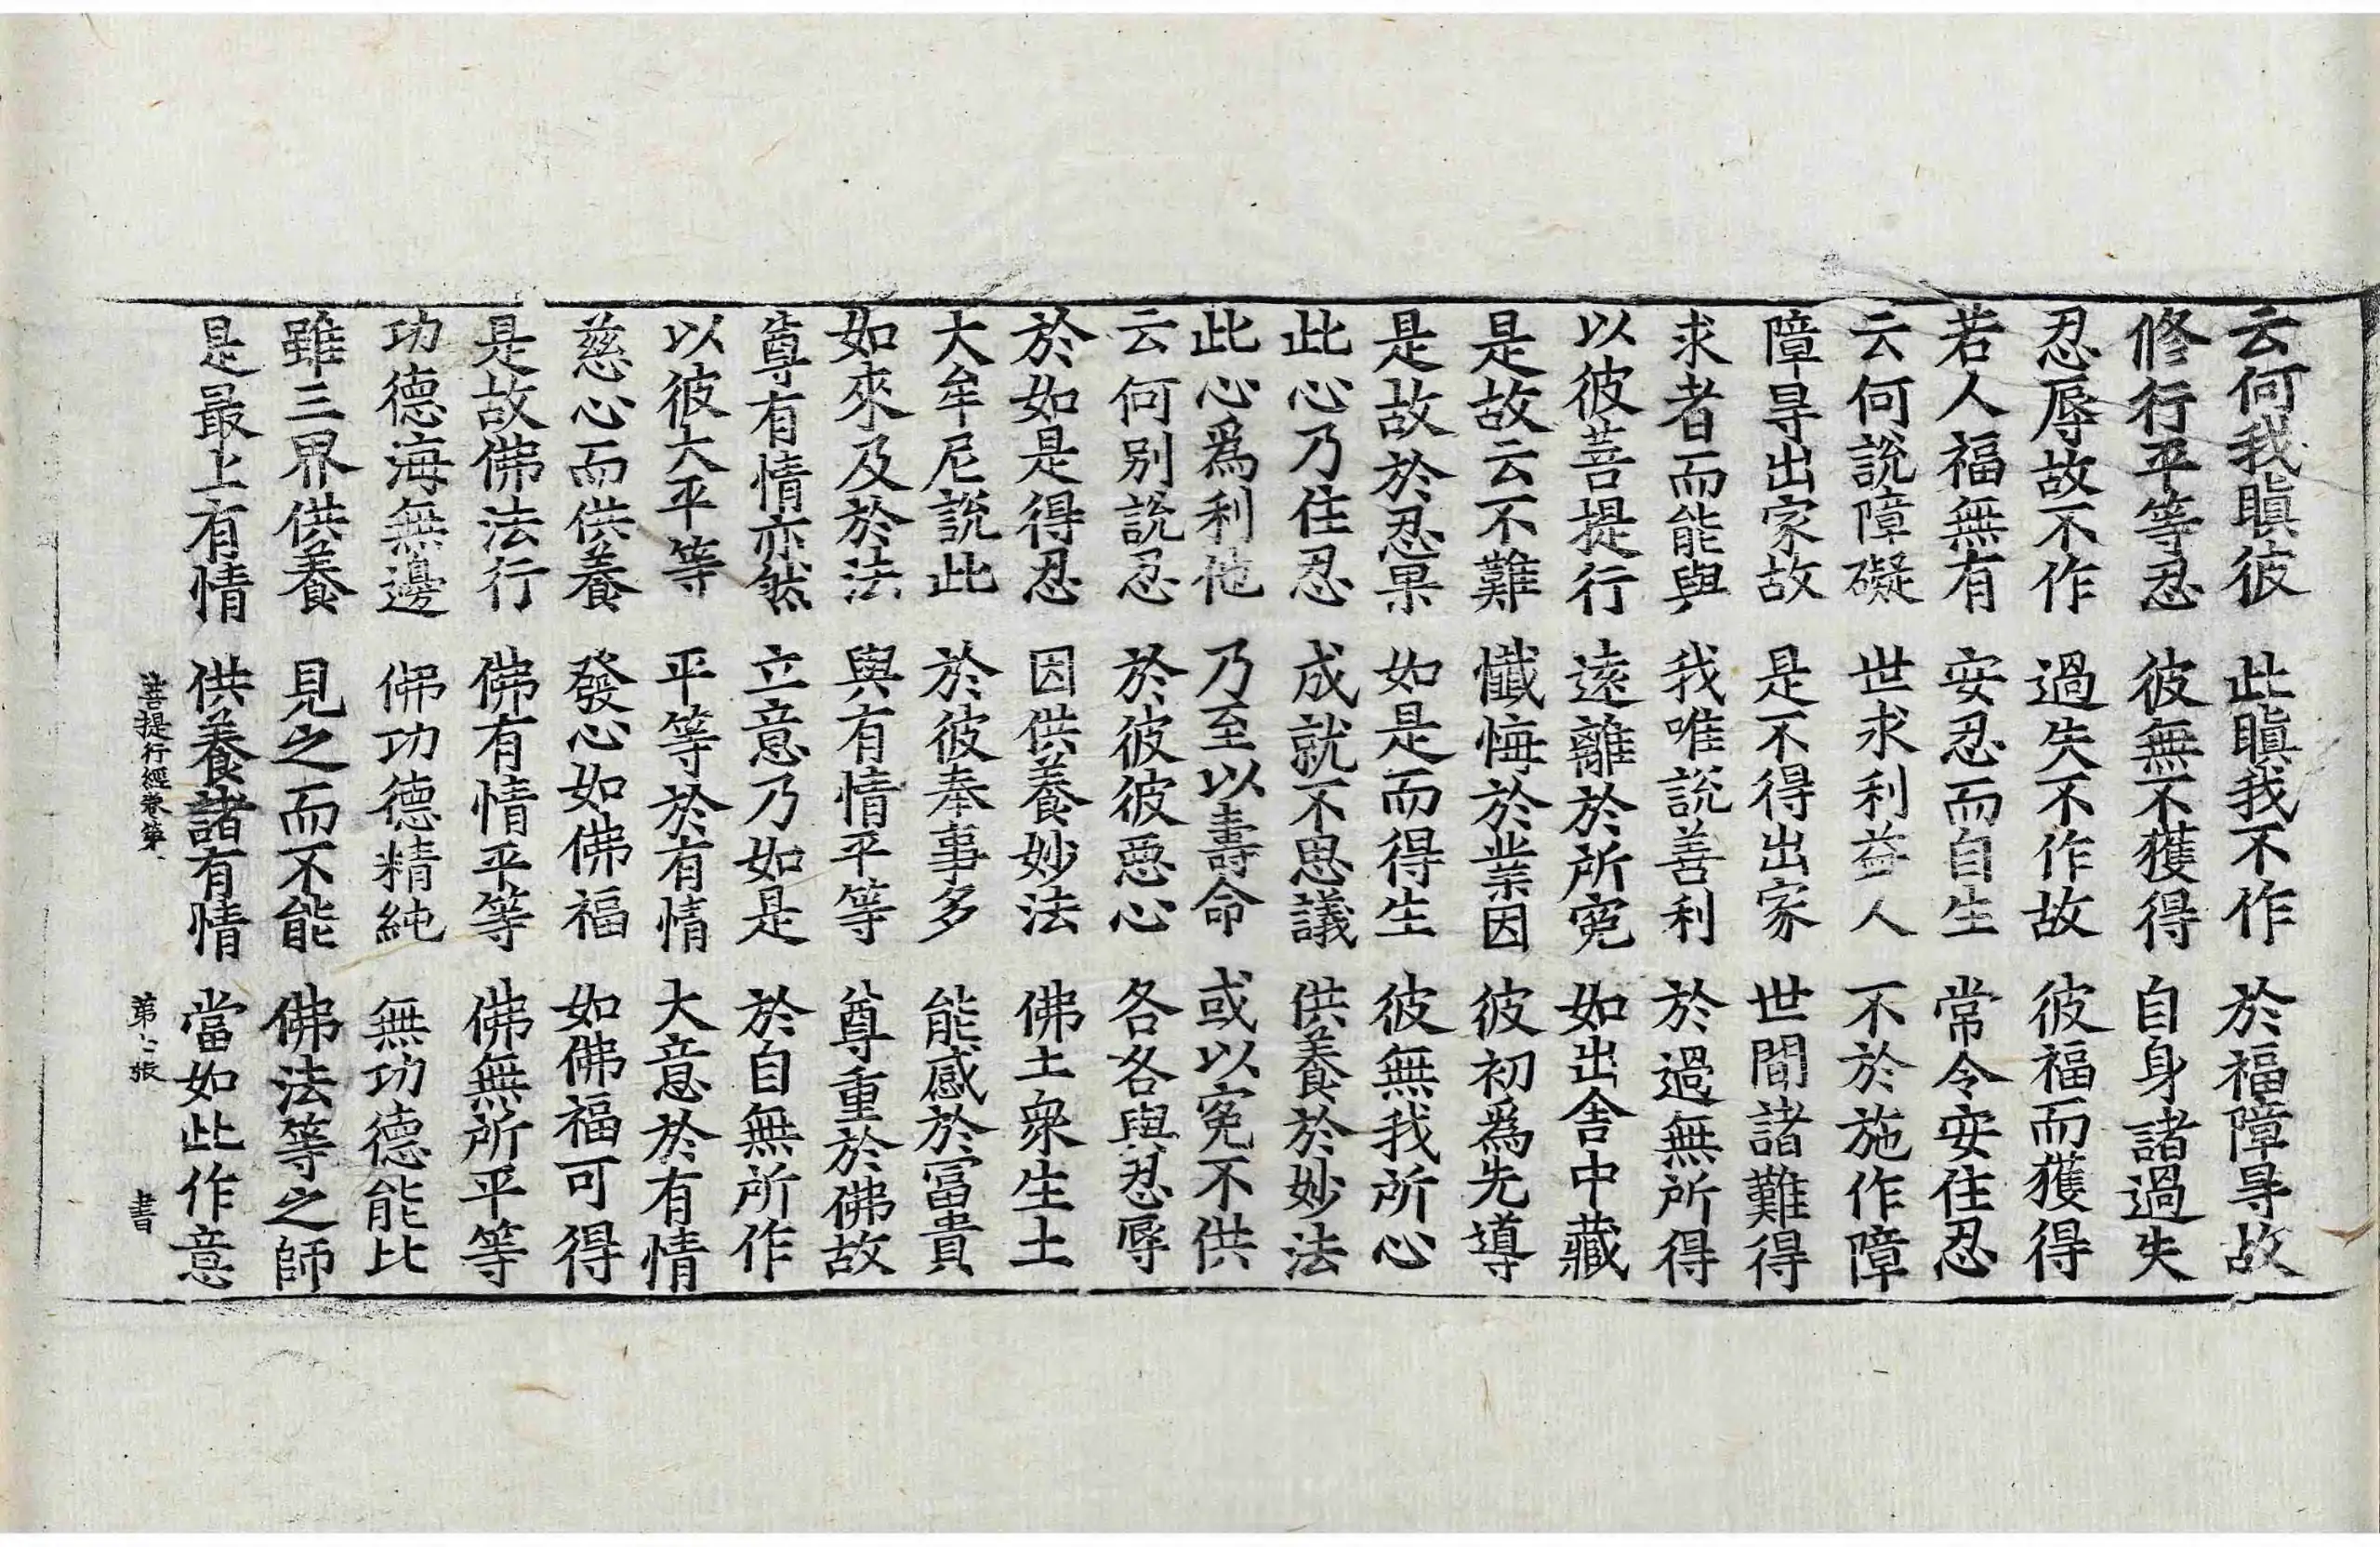 云何我瞋彼　此瞋我不作　於福障㝵故
修行平等忍　彼無不獲得　自身諸過失
忍辱故不作　過失不作故　彼福而獲得
若人福無有　安忍而自生　常令安住忍
云何說障礙　世求利益人　不於施作障
障㝵出家故　是不得出家　世間諸難得
求者而能與　我唯說善利　於過無所得
以彼菩提行　遠離於所寃　如出舍中藏
是故云不難　懺悔於業因　彼初爲先導
是故於忍果　如是而得生　彼無我所心
此心乃住忍　成就不思議　供養於妙法
此心爲利他　乃至以壽命　或以寃不供
云何別說忍　於彼彼惡心　各各與忍辱
於如是得忍　因供養妙法　佛土衆生土
大牟尼說此　於彼奉事多　能感於富貴
如來及於法　與有情平等　尊重於佛故
尊有情亦然　立意乃如是　於自無所作
以彼大平等　平等於有情　大意於有情
慈心而供養　發心如佛福　如佛福可得
是故佛法行　佛有情平等　佛無所平等
功德海無邊　佛功德精純　無功德能比
雖三界供養　見之而不能　佛法等之師
是最上有情　供養諸有情　當如此作意
菩提行經卷第　第七張　書